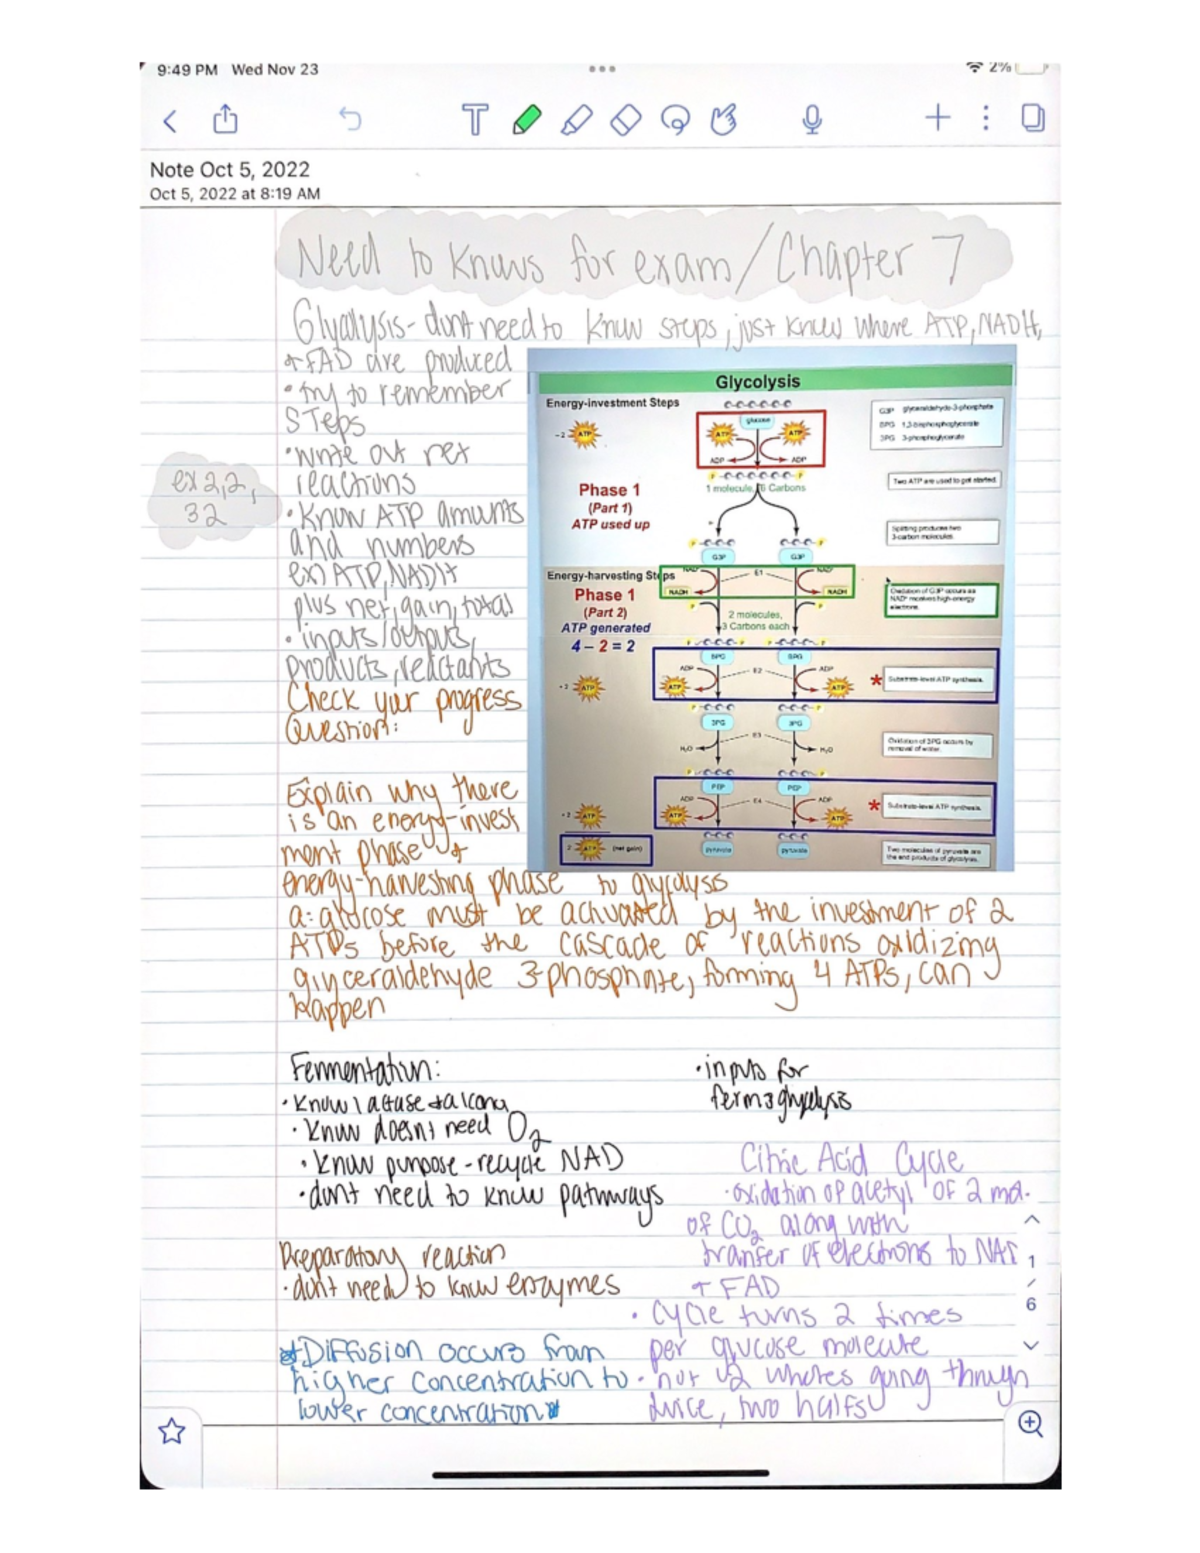 9:49 PM Wed Nov 23
2%
Note Oct 5, 2022
Oct 5, 2022 at 8:19 AM
Need to knows for exam/Chapter 7
Glycolysis- dont need to know steps, just know where ATP, NADH,
+ FAD are produced
• try to remember
STeps
• write out net
reactions
ex 2,2,
32
• Know ATP amounts
and numbers
ex) ATP, NADH
plus net, gain, total
• inputs/outputs,
products, reactants
Check your progress
Question:
Glycolysis
Energy-investment Steps
-2 ATP
glucose
ATP ATP
ADP ADP
P P
1 molecule, 6 Carbons
Phase 1
(Part 1)
ATP used up
G3P glyceraldehyde-3-phosphate
BPG 1,3-bisphosphoglycerate
3PG 3-phosphoglycerate
Two ATP are used to get started.
Splitting produces two
3-carbon molecules.
P P
G3P G3P
Energy-harvesting Steps
NAD+ E1 NAD+
NADH NADH
P P
Phase 1
(Part 2)
ATP generated
4 – 2 = 2
2 molecules,
3 Carbons each
Oxidation of G3P occurs as
NAD+ receives high-energy
electrons.
BPG BPG
ADP E2 ADP
+2 ATP
ATP ATP
* Substrate-level ATP synthesis.
3PG 3PG
E3
H₂O H₂O
Oxidation of 3PG occurs by
removal of water.
P P
PEP PEP
ADP E4 ADP
+2 ATP
ATP ATP
* Substrate-level ATP synthesis.
2 ATP (net gain)
pyruvate pyruvate
Two molecules of pyruvate are
the end products of glycolysis.
Explain why there
is an energy-invest
ment phase +
energy-harvesting phase to glycolysis
a: glucose must be activated by the investment of 2
ATPs before the cascade of reactions oxidizing
glyceraldehyde 3-phosphate, forming 4 ATPs, can
happen
Fermentation:
• Know lactase + alcohol
• Know doesnt need O₂
• Know purpose - recycle NAD
• dont need to know pathways
• inputs for
ferm glycolysis
Preparatory reaction
• dont need to know enzymes
*Diffusion occurs from
higher concentration to
lower concentration*
Citric Acid Cycle
• oxidation of acetyl of 2 mol.
of CO₂ along with
tranfer of electrons to NAD
+ FAD
• Cycle turns 2 times
per glucose molecule
• not 2 wholes going through
twice, two halfs
1
/
6